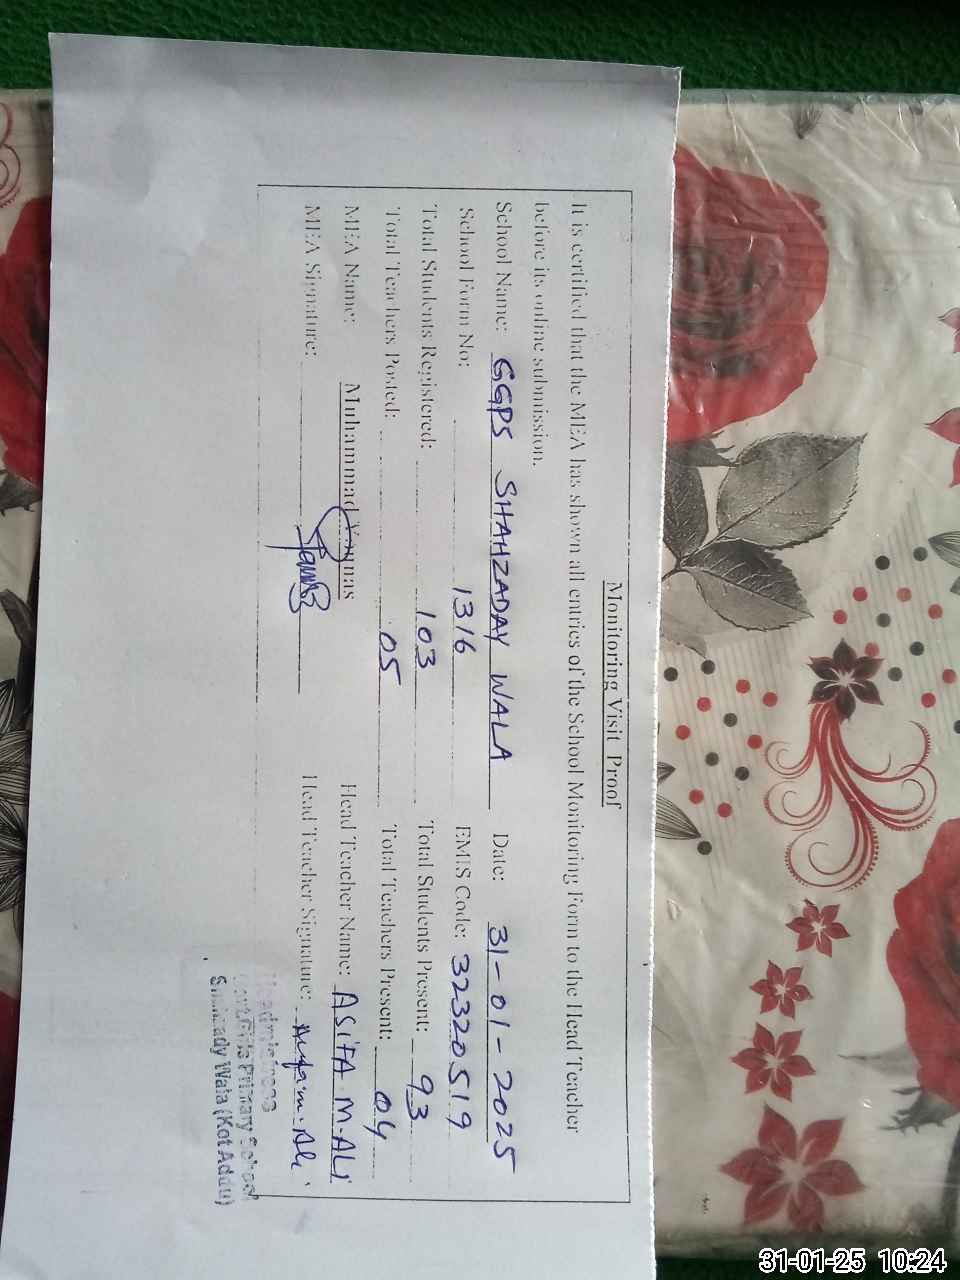 Monitoring Visit Proof
It is certified that the MEA has shown all entries of the School Monitoring Form to the Head Teacher
before its online submission.
School Name: GGPS SHAHZADAY WALA Date: 31-01-2025
School Form No: 1316 EMIS Code: 32320519
Total Students Registered: 103 Total Students Present: 93
Total Teachers Posted: 05 Total Teachers Present: 04
MEA Name: Muhammad Younas Head Teacher Name: ASIFA M.ALI
MEA Signature: Head Teacher Signature:
Headmistress
Govt. Girls Primary School
Shahzady Wala (Kot Addu)
31-01-25 10:24